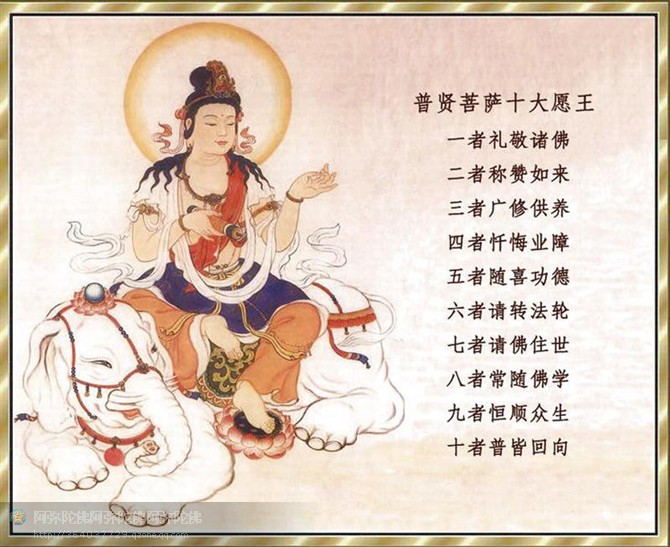 普贤菩萨十大愿王
一者礼敬诸佛
二者称赞如来
三者广修供养
四者忏悔业障
五者随喜功德
六者请转法轮
七者请佛住世
八者常随佛学
九者恒顺众生
十者普皆回向
阿弥陀佛阿弥陀佛阿弥陀佛